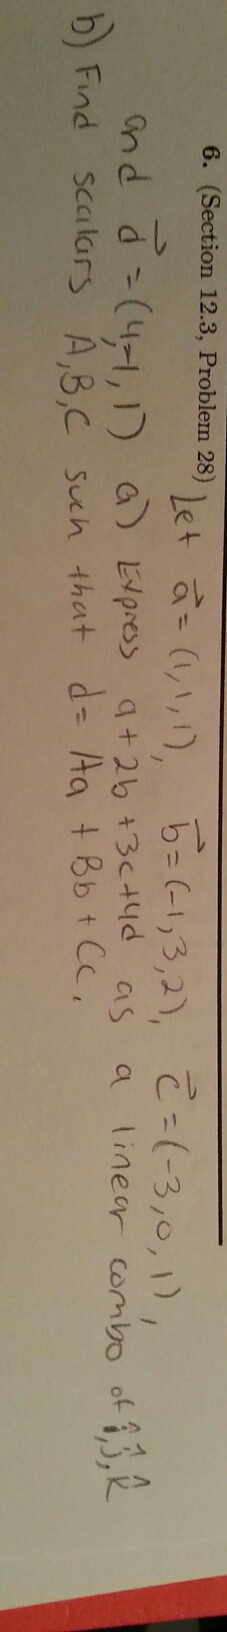 6. (Section 12.3, Problem 28) Let a⃗ = (1, 1, 1), b⃗ = (-1, 3, 2), c⃗ = (-3, 0, 1),
and d⃗ = (4, -1, 1) a) Express a + 2b + 3c + 4d as a linear combo of î, ĵ, k̂
b) Find scalars A, B, C such that d = Aa + Bb + Cc.